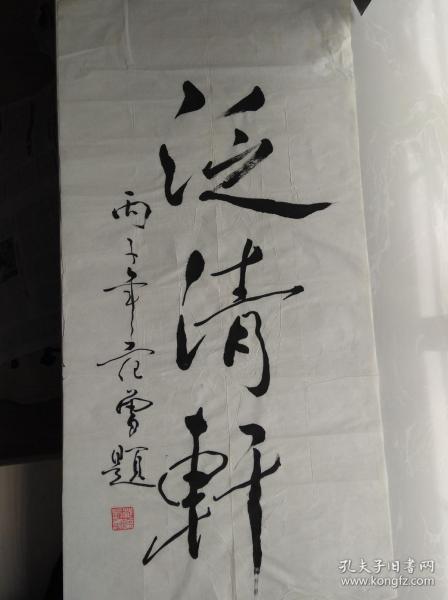 泛清軒
丙子年范曾題
孔夫子旧书网
www.kongfz.com